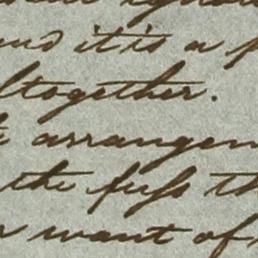 and it is a
altogether.
arrangem
the fuss th
want of